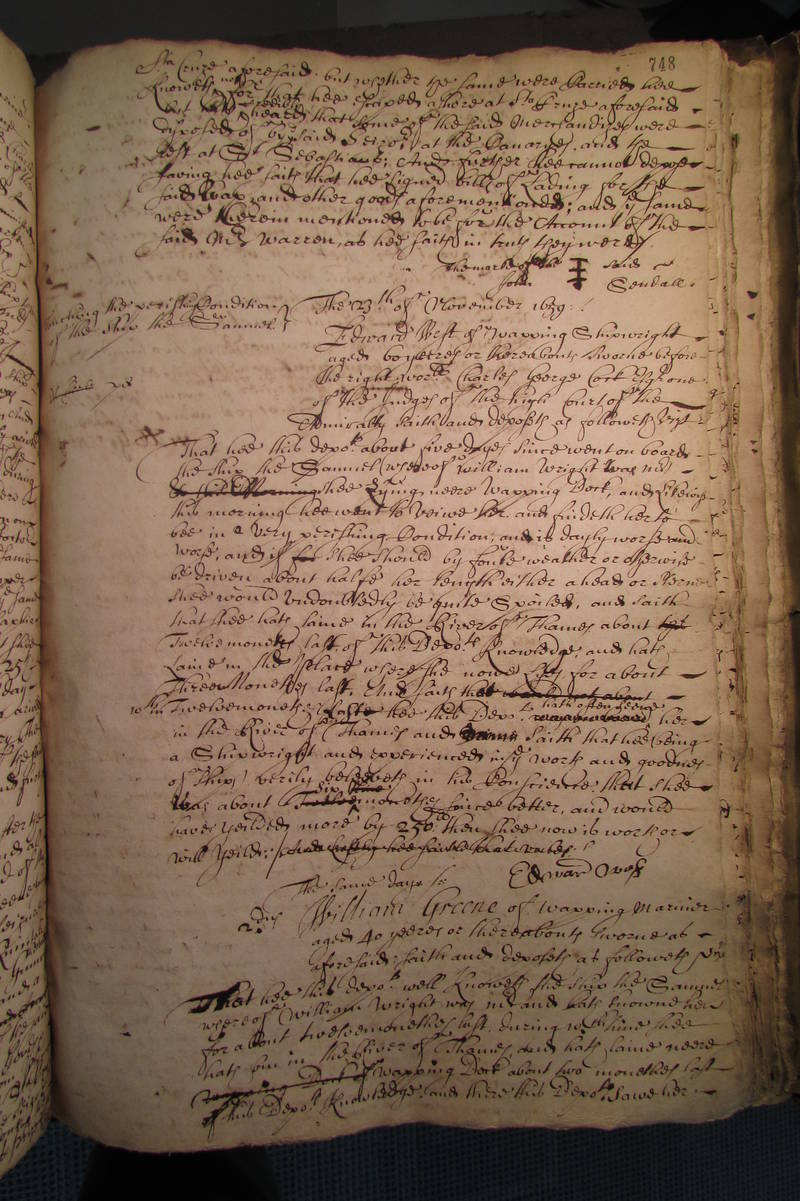 748
Sta Cruze aforesaid, but whither the same were carried hee
knoweth not for that hee stayed a shore at Sta Cruze aforesaid
but heard that some of the said merchandizes were
disposed of by said at the Canaries, and the
rest at St Sebastians; And further hee cannot depose
saving hee saith that hee signed bills of Lading for the
said Wax and other goods aforementioned, and the same
were therein mentioned to be for the Account of the
said Mr Warren, as hee saith in truth they were
The marke of the said
John Sendall.
touching the perishing Condition
of the ship the Samuel
The 23th of November 1659.
Edward West of Wapping Shipwright
aged 60 yeeres or thereabouts sworne before
the right worll Charles George Cock Esqr one
of the Judges of the high Court of the
Admiralty saith and deposeth as followeth vizt
That hee this depot about five dayes since went on board
the ship the Samuel (whereof William Wright was mr)
shee lying neere Wapping Dock, and likewise
this morning hee went to veiwe her, and findeth her to
bee in a very perishing Condition, and is dayly worse and
worse, and if shee should by foule weather or otherwise
be driven about halfe her length either a head or sterne
shee would undoubtedly be quite Spoiled, and saith
that shee hath laine in the River of Thames about
Twelve moneths last of this Depots knowledge, and hath
Laine in the place where she nowe lyes for about
Three Moneths last, And saith that
wth in Twelve moneths last hee this Depot hath often seene her
in the River of Thames and saith that hee being
a Shipwright and experienced in the worth and goodnes
of Ships verily beleeveth in his Conscience that shee
was about six moneths since better, and would
have yeilded more by 250li then shee now is worth or
will yeild.
Edward West
The same day
2dus
William Greene of Wapping Mariner
aged 40 yeeres or thereabouts sworne as
aforesaid, saith and deposeth as followeth vizt
That hee this depot well knoweth the ship the Samuel
whereof William Wright was mr and hath knowne her
for about twelve moneths last, during wch time shee
hath bin in the River of Thames and hath laine neere
Wapping Dock about two moneths last
of this Depots knowledge, and there this Depot sawe her